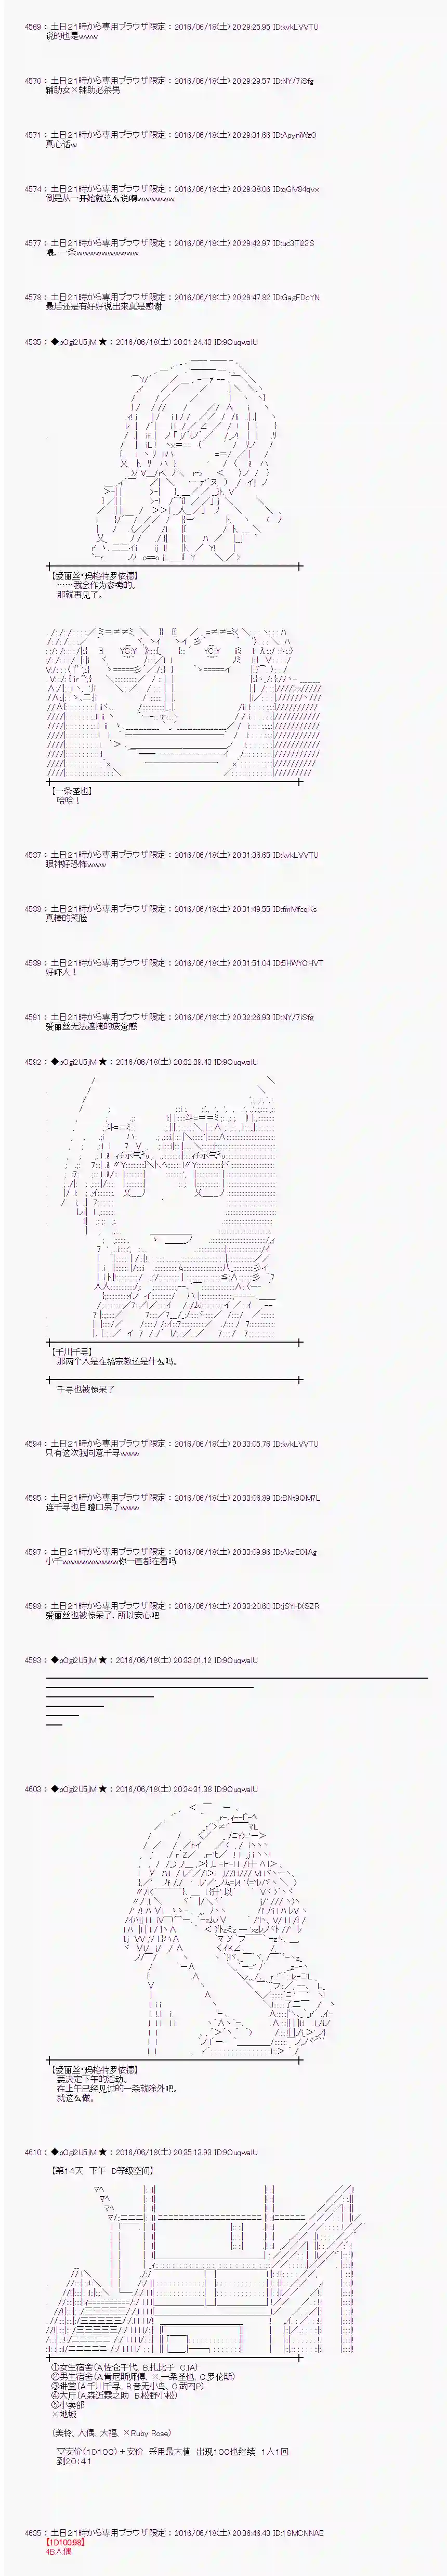 4569 : 土日２１時から専用ブラウザ限定 : 2016/06/18(土) 20:29:25.95 ID:kvkLVVTU
说的也是www
4570 : 土日２１時から専用ブラウザ限定 : 2016/06/18(土) 20:29:29.57 ID:NY/7iSfg
辅助女×辅助必杀男
4571 : 土日２１時から専用ブラウザ限定 : 2016/06/18(土) 20:29:31.66 ID:ApyniWzO
真心话w
4574 : 土日２１時から専用ブラウザ限定 : 2016/06/18(土) 20:29:38.06 ID:qGM84qvx
倒是从一开始就这么说啊wwwwww
4577 : 土日２１時から専用ブラウザ限定 : 2016/06/18(土) 20:29:42.97 ID:uc3Ti23S
喂，一条wwwwwwwwww
4578 : 土日２１時から専用ブラウザ限定 : 2016/06/18(土) 20:29:47.82 ID:GagFDcYN
最后还是有好好说出来真是感谢
4585 : ◆pOgi2U5jM ★ : 2016/06/18(土) 20:31:24.43 ID:9OuqwaIU
【爱丽丝·玛格特罗依德】
……我会作为参考的。
那就再见了。
【一条圣也】
哈哈！
4587 : 土日２１時から専用ブラウザ限定 : 2016/06/18(土) 20:31:36.65 ID:kvkLVVTU
眼神好恐怖www
4588 : 土日２１時から専用ブラウザ限定 : 2016/06/18(土) 20:31:49.55 ID:fmMfcqKs
真棒的笑脸
4589 : 土日２１時から専用ブラウザ限定 : 2016/06/18(土) 20:31:51.04 ID:5HWYOHVT
好吓人！
4591 : 土日２１時から専用ブラウザ限定 : 2016/06/18(土) 20:32:26.93 ID:NY/7iSfg
爱丽丝无法遮掩的疲惫感
4592 : ◆pOgi2U5jM ★ : 2016/06/18(土) 20:32:39.43 ID:9OuqwaIU
【千川千寻】
那两个人是在搞宗教还是什么吗。
千寻也被惊呆了
4594 : 土日２１時から専用ブラウザ限定 : 2016/06/18(土) 20:33:05.76 ID:kvkLVVTU
只有这次我同意千寻www
4595 : 土日２１時から専用ブラウザ限定 : 2016/06/18(土) 20:33:06.89 ID:BNt9QM7L
连千寻也目瞪口呆了www
4597 : 土日２１時から専用ブラウザ限定 : 2016/06/18(土) 20:33:09.96 ID:AkaEOIAg
小千wwwwwwwww你一直都在看吗
4598 : 土日２１時から専用ブラウザ限定 : 2016/06/18(土) 20:33:20.60 ID:jSYHXSZR
爱丽丝也被惊呆了，所以安心吧
4593 : ◆pOgi2U5jM ★ : 2016/06/18(土) 20:33:01.12 ID:9OuqwaIU
4603 : ◆pOgi2U5jM ★ : 2016/06/18(土) 20:34:31.38 ID:9OuqwaIU
【爱丽丝·玛格特罗依德】
要决定下午的活动。
在上午已经见过的一条就除外吧。
就这么做。
4610 : ◆pOgi2U5jM ★ : 2016/06/18(土) 20:35:13.93 ID:9OuqwaIU
【第14天 下午 D等级空间】
①女生宿舍(A.佐仓千代, B.扎比子, C.IA)
②男生宿舍(A.肯尼斯师傅, ×一条圣也, C.罗伦斯)
③讲堂(A.千川千寻, B.音无小鸟, C.武内P)
④大厅(A.森近霖之助 B.松野小松)
⑤小卖部
×地域
(美铃、人偶、大福、×Ruby Rose)
▽安价(1D100)＋安价 采用最大值 出现100也继续 1人1回
到20:41
4635 : 土日２１時から専用ブラウザ限定 : 2016/06/18(土) 20:36:46.43 ID:1SMCNNAE
【1D100:98】
4B人偶